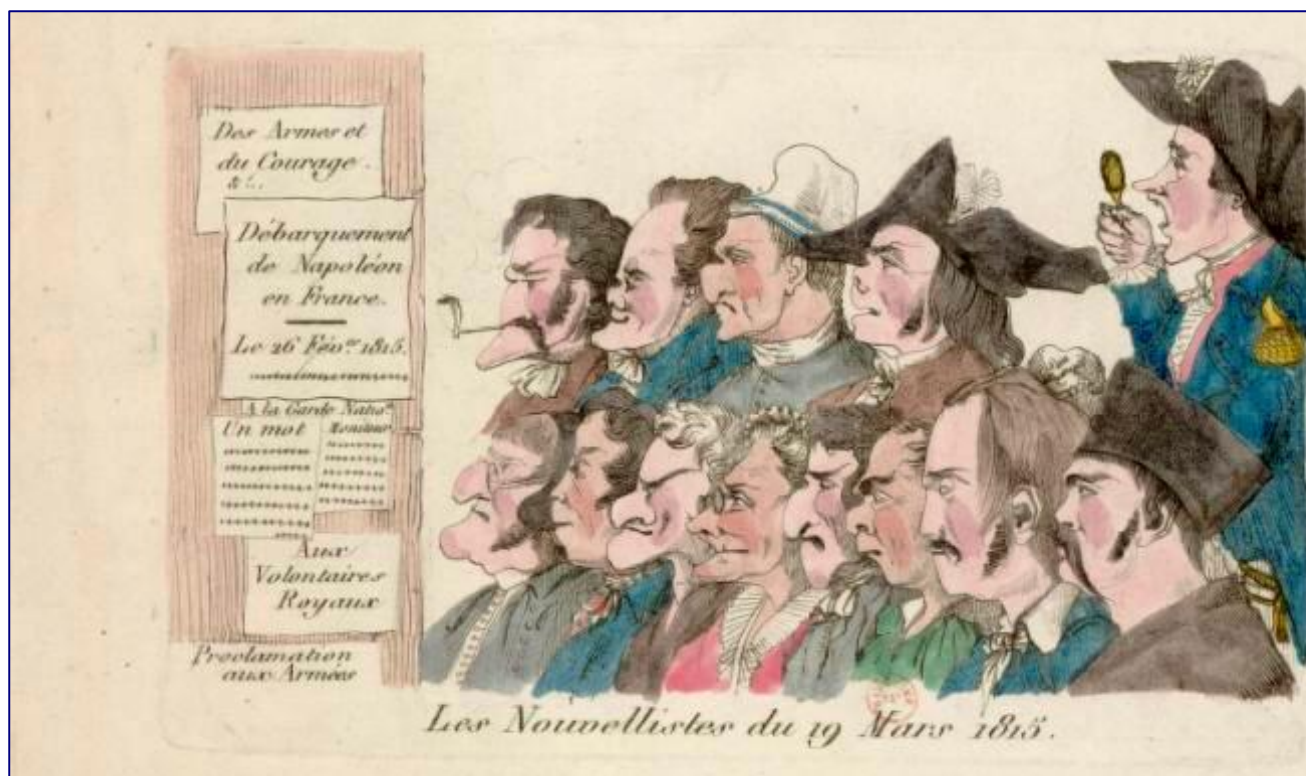 Des Armes et
du Courage.
&c..
Débarquement
de Napoléon
en France.
Le 26 Féver. 1815.
A la Garde Natio.
Un mot
Moniteur
Aux
Volontaires
Royaux
Proclamation
aux Armées
Les Nouvellistes du 19 Mars 1815.